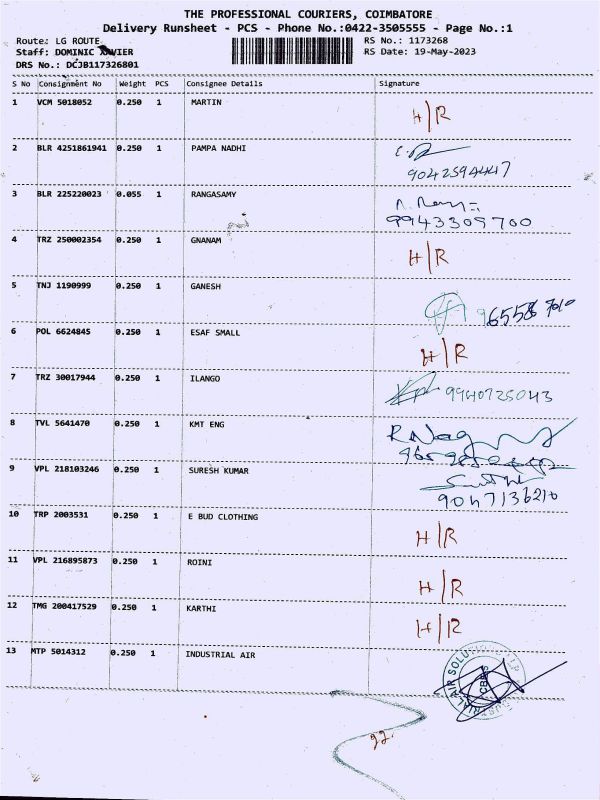 THE PROFESSIONAL COURIERS, COIMBATORE
Delivery Runsheet - PCS - Phone No.:0422-3505555 - Page No.:1
Route: LG ROUTE RS No.: 1173268
Staff: DOMINIC XAVIER RS Date: 19-May-2023
DRS No.: DCJB117326801
S No Consignment No Weight PCS Consignee Details Signature
1 VCM 5018052 0.250 1 MARTIN H/R
2 BLR 4251861941 0.250 1 PAMPA NADHI
9042594447
3 BLR 225220023 0.055 1 RANGASAMY
9943309700
4 TRZ 250002354 0.250 1 GNANAM H/R
5 TNJ 1190999 0.250 1 GANESH
6 POL 6624845 0.250 1 ESAF SMALL H/R
7 TRZ 30017944 0.250 1 ILANGO 9940725043
8 TVL 5641470 0.250 1 KMT ENG
9 VPL 218103246 0.250 1 SURESH KUMAR
9047136210
10 TRP 2003531 0.250 1 E BUD CLOTHING H/R
11 VPL 216895873 0.250 1 ROINI H/R
12 TMG 200417529 0.250 1 KARTHI H/R
13 MTP 5014312 0.250 1 INDUSTRIAL AIR